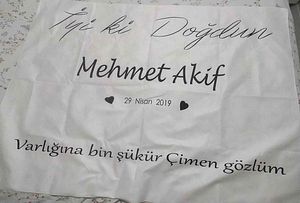 İyi ki Doğdun
Mehmet Akif
29 Nisan 2019
Varlığına bin şükür Çimen gözlüm